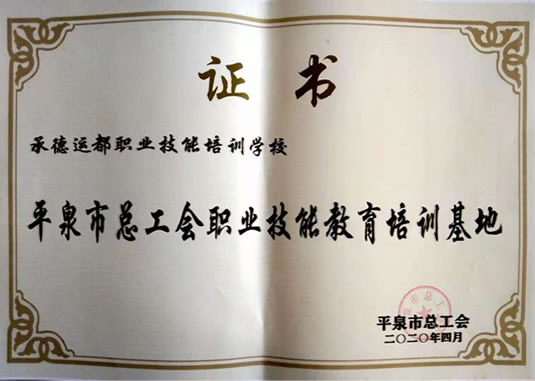 证书
承德运都职业技能培训学校
平泉市总工会职业技能教育培训基地
平泉市总工会
二〇二〇年四月